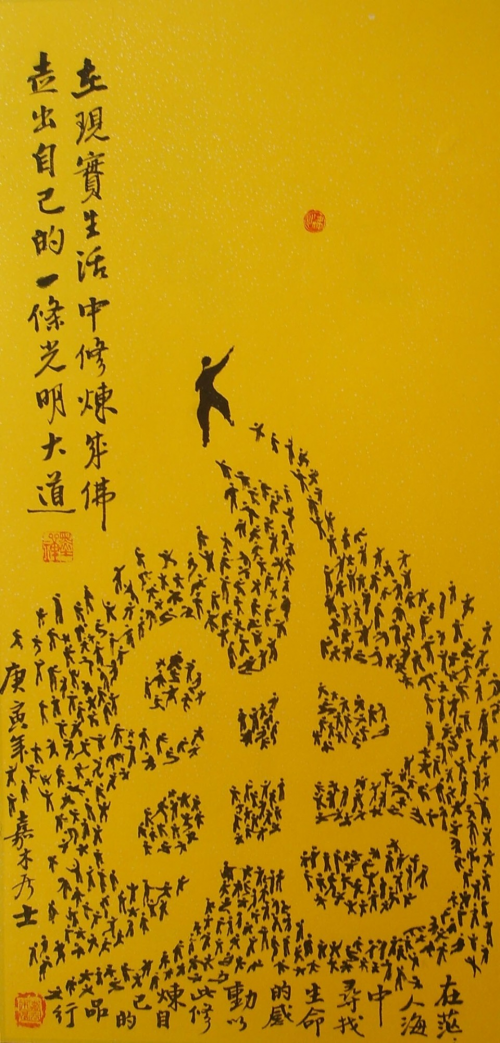 在現實生活中修煉成佛
走出自己的一條光明大道
庚寅年 嘉木
在茫
人海
中
尋找
生命
的感
動以
此修
煉自
己的
品
行